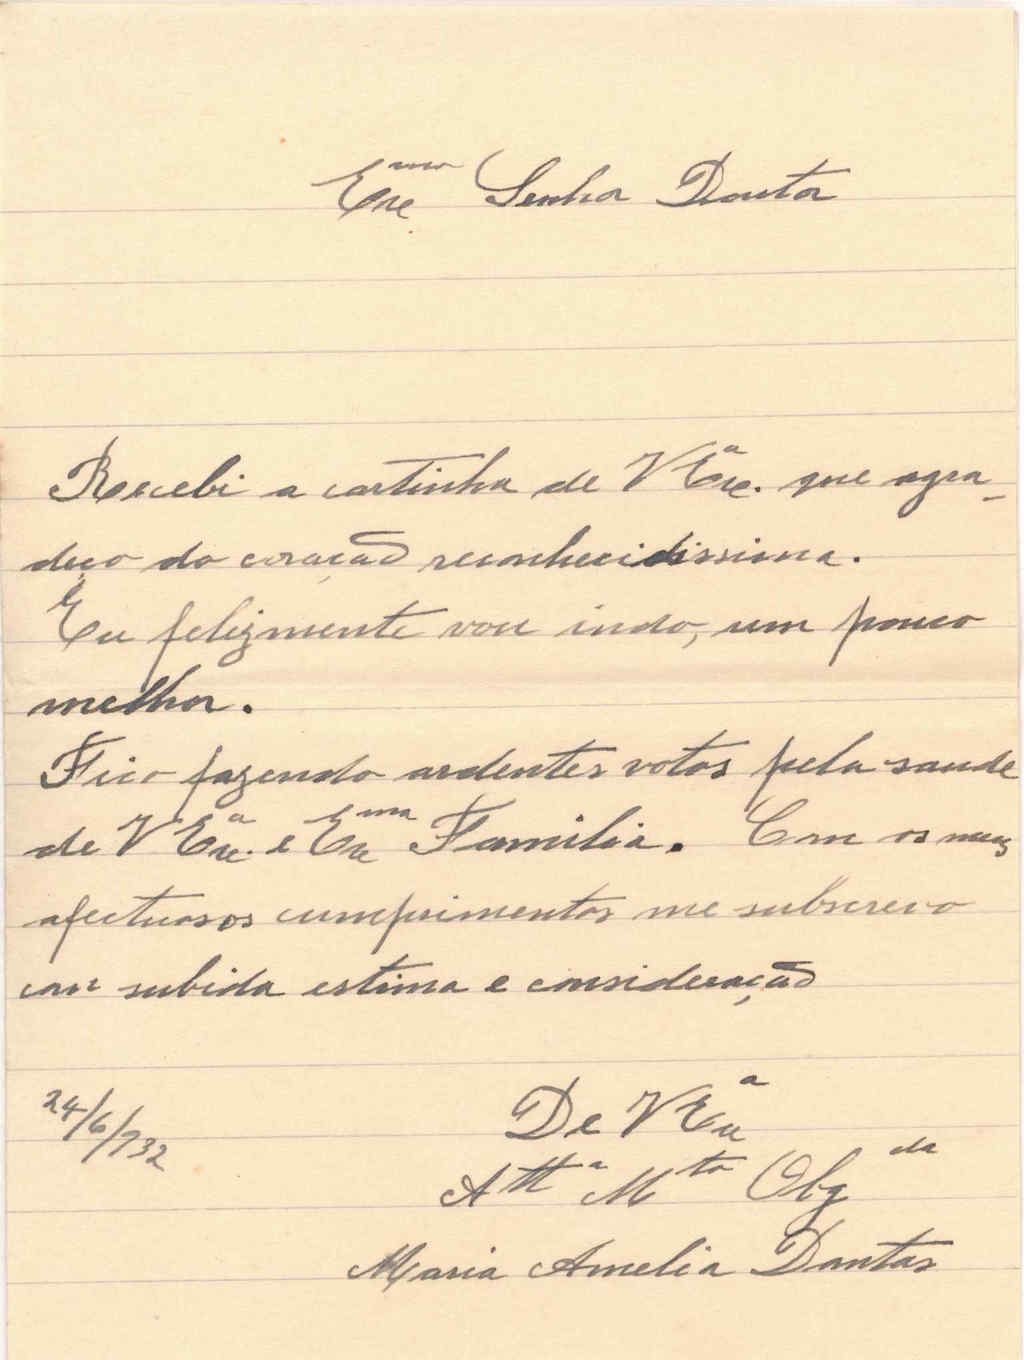 Exmo Senhor Doutor
Recebi a cartinha de V Exª. que agra-
deço do coração reconhecidissima.
Eu felizmente vou indo, um pouco
melhor.
Fico fazendo ardentes votos pela saude
de V Exª. e Exma Familia. Com os meus
afectuosos cumprimentos me subscrevo
com subida estima e consideração
24/6/932
De V Exª
Attª Mto Obgda
Maria Amelia Dantas